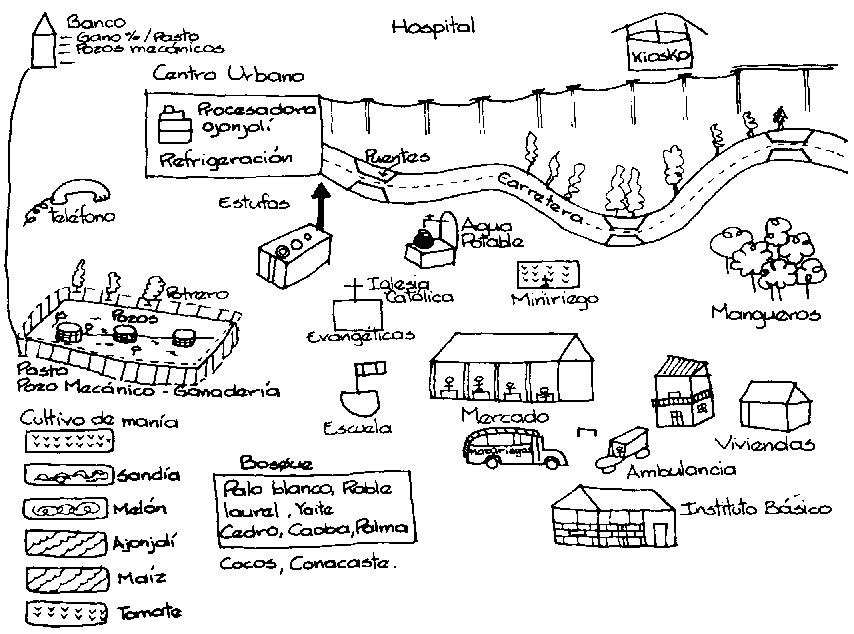 Banco
— Gano %/Pasto
— Pozos mecánicos
Hospital
Kiosko
Centro Urbano
Procesadora
ajonjolí
Refrigeración
Puentes
Carretera
teléfono
Estufas
Agua
Potable
Iglesia
Católica
Evangélicas
Miniriego
Mangueros
Potrero
Pozos
Pasto
Pozo Mecánico - Ganadería
Escuela
Mercado
Viviendas
Ambulancia
Instituto Básico
Cultivo de manía
Sandía
Melón
Ajonjolí
Maíz
Tomate
Bosque
Palo blanco, Roble
laurel, Yaite
Cedro, Caoba, Palma
Cocos, Conacaste.